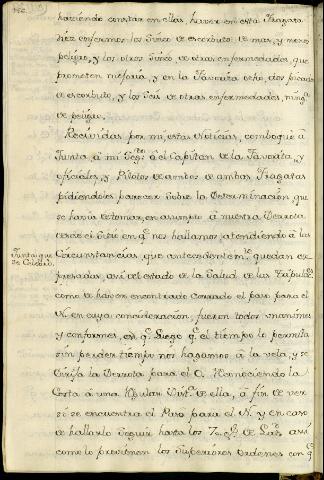 haciendo constar en ellas, haver en esta Fragata
diez enfermos los cinco de escorbuto, de mas, y menos
peligro, y los otros cinco de otras enfermedades, que
prometen mejoria, y en la Favorita ocho, dos picados
de escorbuto, y los Seis de otras enfermedades, ning.ª
de peligro.
Recividas por mi, estas Noticias, comboqué á
Junta, á mi Seg.do á el Capitan de la Favorita, y
oficiales, y Pilotos de ambos de ambas Fragatas
pidiendoles parecer sobre la Determinacion que
se havia de tomar, en asumpto á nuestra Derrota
desde el Sitio en q.e nos hallamos, atendiendo á las
Junta que se Celebró.
Circunstancias, que antecedentem.te quedan ex-
presadas, asi del estado de la Salud de las Tripulac.s
como de haver encontrado Cerrado el paso para el
N. en cuya concideracion, fueron todos unanimes
y conformes, en q.e Luego q.e el tiempo lo permita
sin perder tiempo nos hagamos á la vela, y se
dirija la Derrota para el O. Reconociendo la
Costa á una Regular Dist.ª de ella, á fin de ver
si se encuentra el Paso para el N. y en caso
de hallarlo Seguir hasta los 70 g.s de Lat.d asi
como lo previenen los Superiores Ordenes con q.e